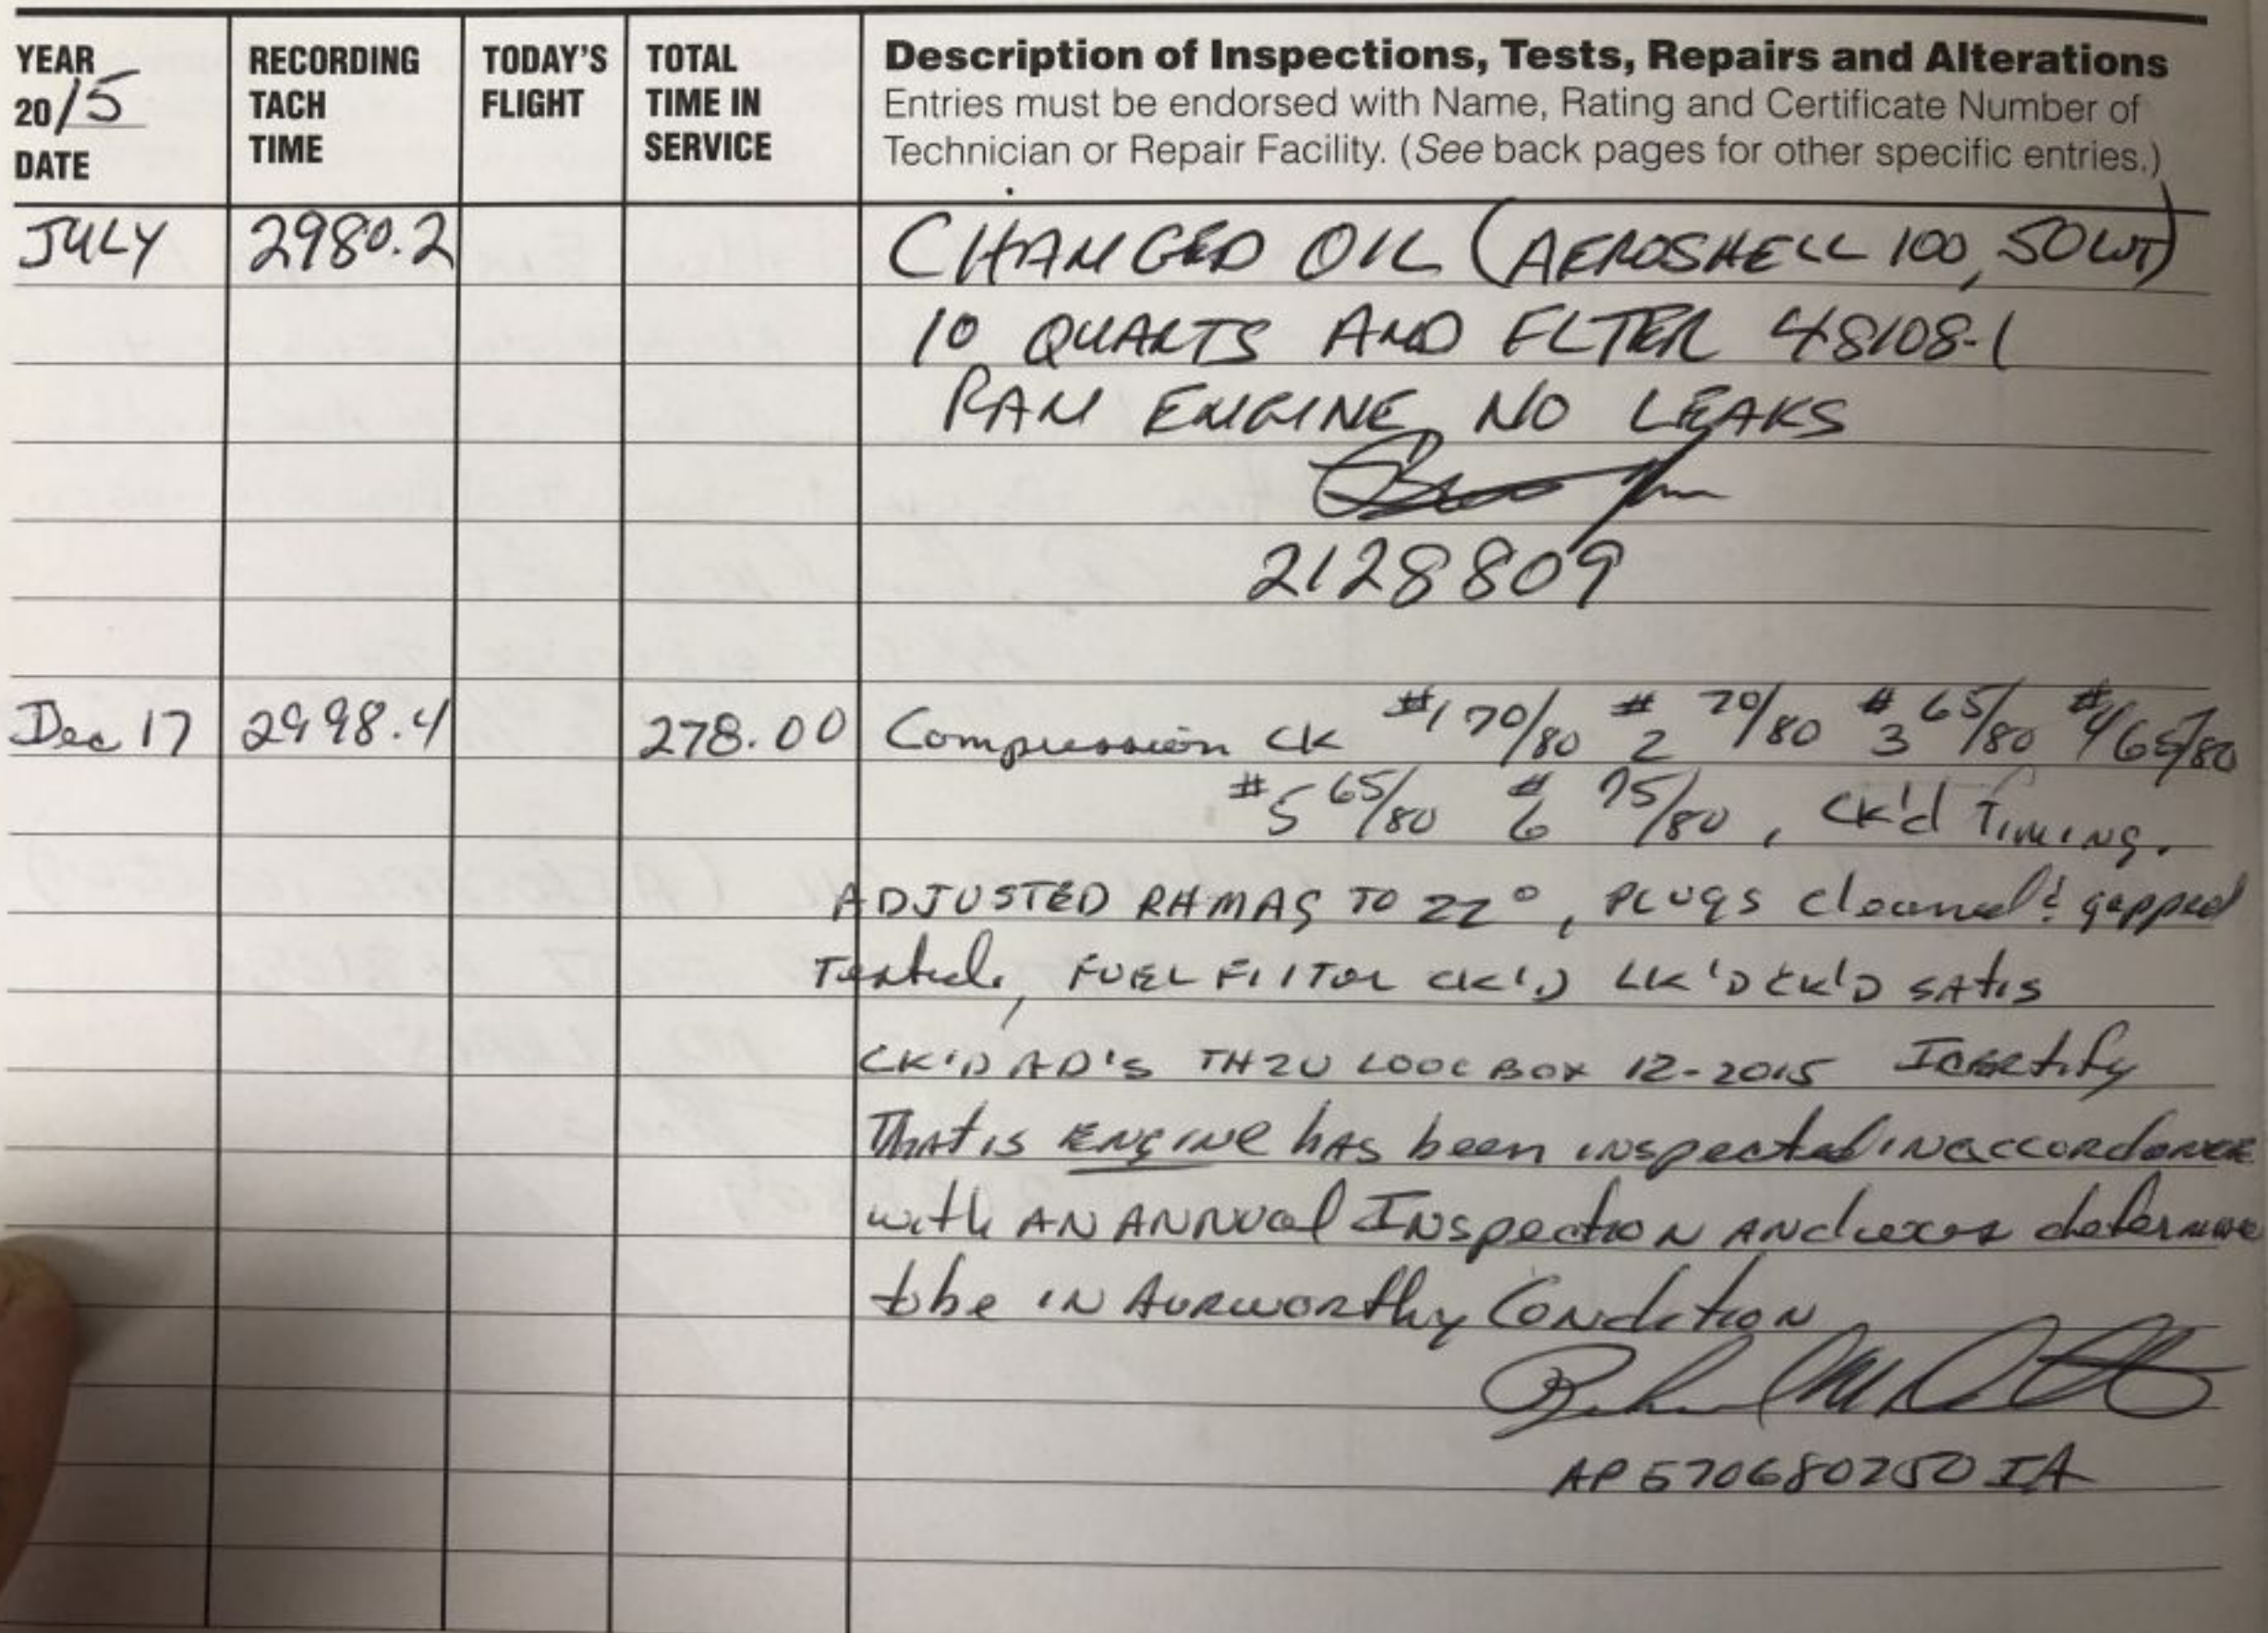 YEAR
20 15
DATE
RECORDING
TACH
TIME
TODAY'S
FLIGHT
TOTAL
TIME IN
SERVICE
Description of Inspections, Tests, Repairs and Alterations
Entries must be endorsed with Name, Rating and Certificate Number of
Technician or Repair Facility. (See back pages for other specific entries.)
JULY 2980.2 CHANGED OIL (AEROSHELL 100, 50WT)
10 QUARTS AND FLTER 48108-1
RAN ENGINE, NO LEAKS
2128809
Dec 17 2998.4 278.00 Compression CK #1 70/80 #2 70/80 #3 65/80 #4 65/80
#5 65/80 #6 75/80, CK'd TIMING.
ADJUSTED RHMAG TO 22°, PLUGS cleaned & gapped
Tested, FUEL FIITOR CK'D CK'D SATIS
CK'D AD'S THRU 12-2015 I certify
THAT is ENGINE hAS been INspected IN accordance
with AN ANNUal INspection ANd was determine
to be IN AURworthy CoNditioN
AP 570680250 IA